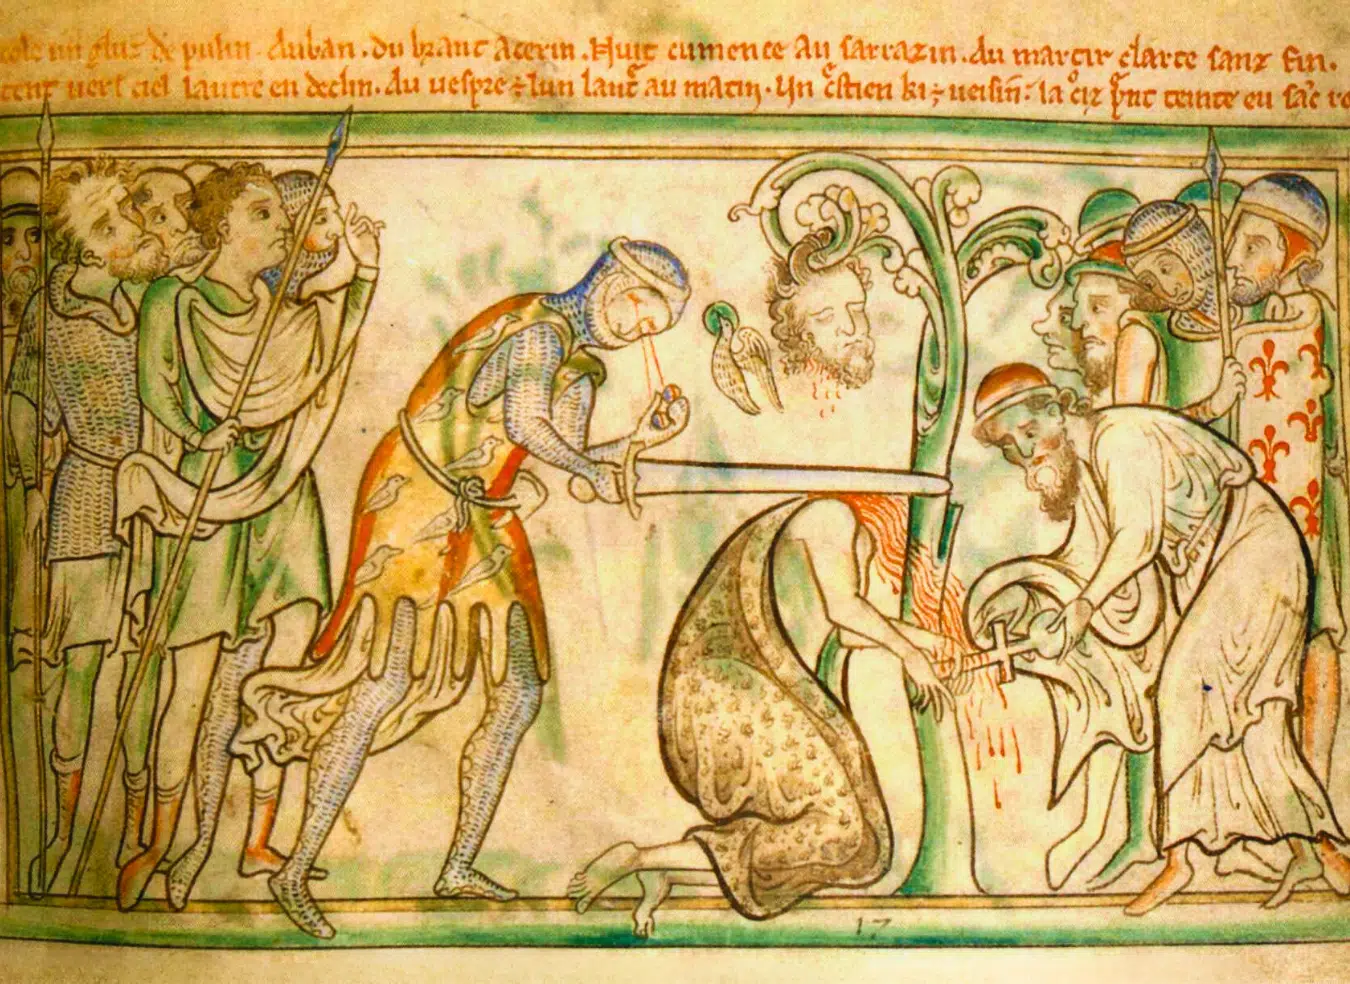 cole un glut de puslin. Auban. du branc acerin. Nuit cumence au sarrazin. Au martir clarte sanz fin.
tent vers ciel lautre en declin. Au vespre ⁊ lun laut᷑ au matin. Un cͥstien ki ⁊ veisin: la c̊iz p᷑nt teinte eu
17